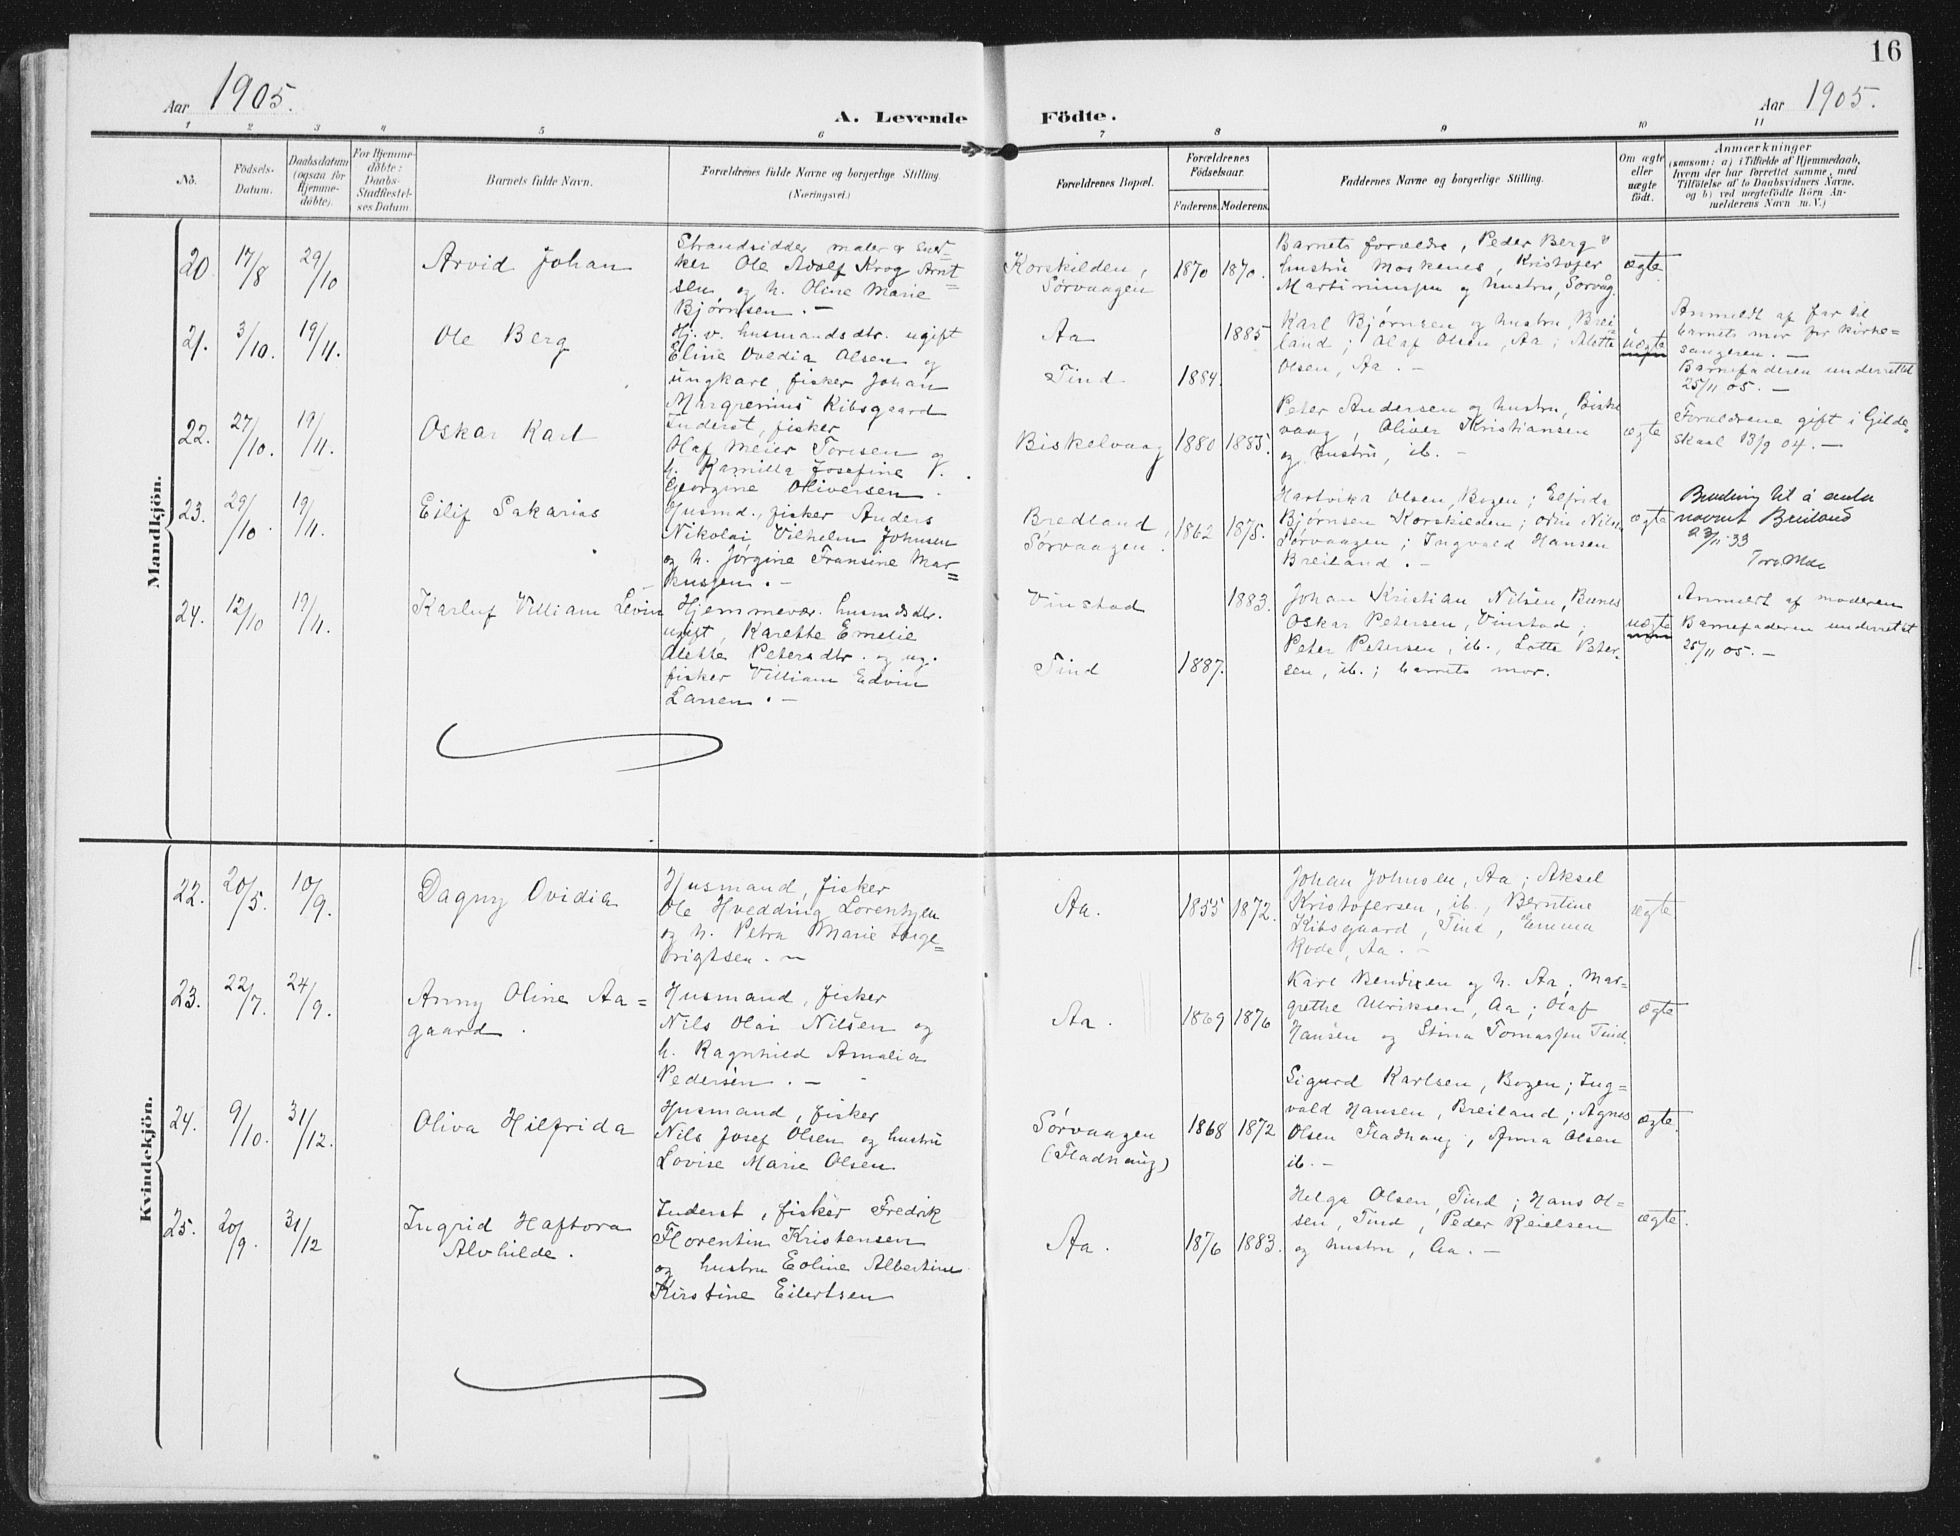 16
Aar 1905.
A. Levende Födte.
Aar 1905.
1 2 3 4 5 6 7 8 9 10 11
No.
Födsels-
Datum.
Daabsdatum
(ogsaa for
Hjemme-
döbte).
For Hjemme-
döbte:
Daabs-
Stadfæstel-
ses Datum
Barnets fulde Navn.
Forældrenes fulde Navne og borgerlige Stilling.
(Næringsvei.)
Forældrenes Bopæl.
Forældrenes
Födselsaar.
Faderens. Moderens.
Faddernes Navne og borgerlige Stilling.
Om ægte
eller
uægte
födt.
Anmærkninger
(saasom: a) i Tilfælde af Hjemmedaab,
hvem der har forrettet samme, med
Tilföielse af to Daabsvidners Navne,
og b) ved uægtefödte Börn An-
melderens Navn m. V.)
Mandkjön.
20. 17/8 29/10
Arvid Johan
Strandsidder, maler & sned-
ker Ole Adolf Krog Arnt
sen og h. Oline Marie
Bjørnsen. —
Korskilden,
Sørvaagen
1870 1870.
Barnets forældre, Peder Berg &
hustru Moskenes, Kristofer
og hustru, Sørvåg.
ægte
21. 3/10. 19/11.
Ole Berg
Hj. v. husmandsdtr. ugift
Eline Ovedia Olsen og
ungkarl, fisker Johan
Margrenius Kibsgaard
Aa
Tind.
1885
1884.
Karl Bjørnsen og hustru, Brei-
land; Olaf Olsen, Aa; Alette
Olsen, Aa. —
uægte
Anmeldt af far til
barnets mor for kirke=
sangeren. —
Barnefaderen underrettet
25/11 05. —
22. 27/10. 19/11.
Oskar Karl
Inderst, fisker
Olaf Meier Toresen og
h. Kamilla Josefine
Georgine Oliversen.
Biskelvaag
1880 1885.
Peter Andersen og hustru, Biskel
vaag, Oliver Kristiansen
og hustru, ib. —
ægte
Forældrene gift i Gilde
skaal 13/9 04. —
23. 29/10. 19/11.
Eilif Sakarias
Husmd., fisker Anders
Nikolai Vilhelm Johnsen
og h. Jørgine Fransine Mar=
kussen. —
Bredland
Sørvaagen.
1862 1875.
Hartvika Olsen, Bogen; Elfrida
Bjørnsen Korskilden; Odin Nilsen
Sørvaagen; Ingvald Hansen
Breiland. —
ægte
til å anta
navnet Breiland
23/11 33
24. 12/10 19/11.
Karluf Villiam Levin
Hjemmevær. husmdsdtr.
ugift, Karette Emelie
Alette Petersdtr. og ug.
fisker Villiam Edvin
Larsen. —
Vinstad
Tind
1883.
1887.
Johan Kristian Nilsen, Bunes
Oskar Petersen, Vinstad;
Peter Petersen, ib., Lotte Peter-
sen, ib.; barnets mor.
uægte
Anmeldt af moderen
Barnefaderen underrettet
25/11 05. —
Kvindekjön.
22. 20/5. 10/9.
Dagny Ovidia
Husmand, fisker
Ole Hvedding Lorentzen
og h. Petra Marie Inge=
brigtsen. —
Aa.
1855 1872.
Johan Johnsen, Aa; Aksel
Kristofersen, ib., Berntine
Kibsgaard, Tind, Emma
Rode, Aa. —
ægte
23. 22/7. 24/9.
Anny Oline Aa=
gaard.
Husmand, fisker
Nils Olai Nilsen og
h. Ragnhild Amalia
Pedersen. —
Aa.
1869 1876
Karl Bendixen og h. Aa; Mar-
grethe Ulriksen, Aa; Olaf
Hansen og Stina Tomassen Tind.
ægte
24. 9/10. 31/12.
Oliva Hilfrida
Husmand, fisker
Nils Josef Olsen og hustru
Lovise Marie Olsen
Sørvaagen
(Fladhaug)
1868 1872
Sigurd Karlsen, Bogen; Ing=
vald Hansen, Breiland; Agnes
Olsen Fladhaug, Anna Olsen
ib. —
ægte.
25. 20/9. 31/12
Ingrid Haftora
Alvhilde.
Inderst, fisker Fredrik
Florentin Kristensen
og hustru Eoline Albertine
Kirstine Eilertsen
Aa.
1876 1883.
Helga Olsen, Tind; Hans Ol-
sen, Tind, Peder Reielsen
og hustru, Aa. —
ægte.